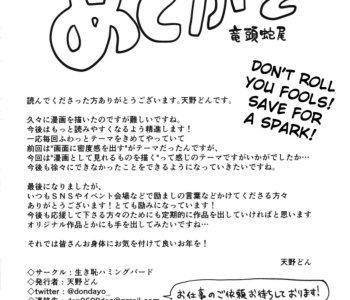 あとがき
竜頭蛇尾
DON'T ROLL
YOU FOOLS!
SAVE FOR
A SPARK!
読んでくださった方ありがとうございます。天野どんです。
久々に漫画を描いたのですが難しいですね。
今後はもっと読みやすくなるよう精進します！
一応毎回ふわっとテーマを決めていて
前回は"画面に密度感を出す"がテーマだったんですが、
今回は"漫画として見れるものを描く"って感じのテーマですがいかがでしたか…
今後も徐々にできなかったことをできるようになっていきたいですね。
最後になりましたが、
いつもSNSやイベント会場などで励ましの言葉などかけてくださる方々
ありがとうございます！とても励みになっています！
今後も応援して下さる方々のためにも定期的に作品を出していければと思います
オリジナル作品とかにも手を出してみたいですね…
それでは皆さんお身体にお気を付けて良いお年を！
天野どん
◇サークル：生き恥ハミングバード
◇発行者：天野どん
◇twitter：@dondayo_
お仕事のご依頼お待ちしております!